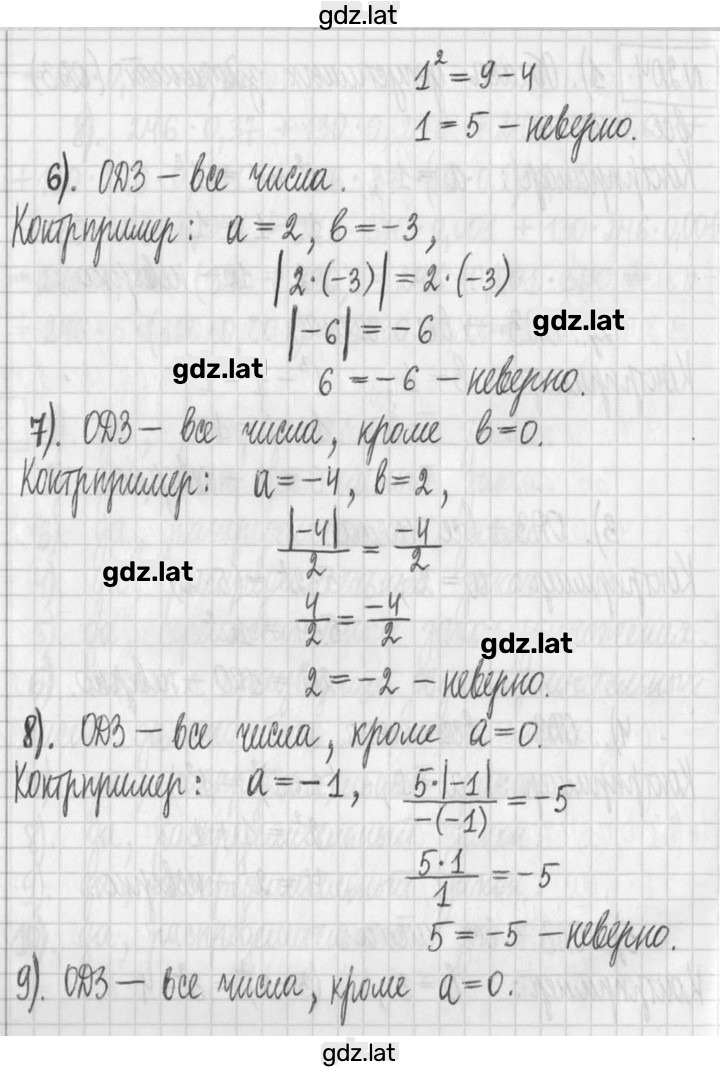 gdz.lat
1² = 9 - 4
1 = 5 - неверно.
6). ОДЗ - все числа.
Контрпример: a = 2, в = -3,
|2·(-3)| = 2·(-3)
|-6| = -6
gdz.lat
gdz.lat
6 = -6 - неверно.
7). ОДЗ - все числа, кроме в=0.
Контрпример: a = -4, в = 2,
|-4|/2 = -4/2
gdz.lat
4/2 = -4/2
gdz.lat
2 = -2 - неверно.
8). ОДЗ - все числа, кроме a=0.
Контрпример: a = -1, 5·|-1|/-(-1) = -5
5·1/1 = -5
5 = -5 - неверно.
9). ОДЗ - все числа, кроме a=0.
gdz.lat